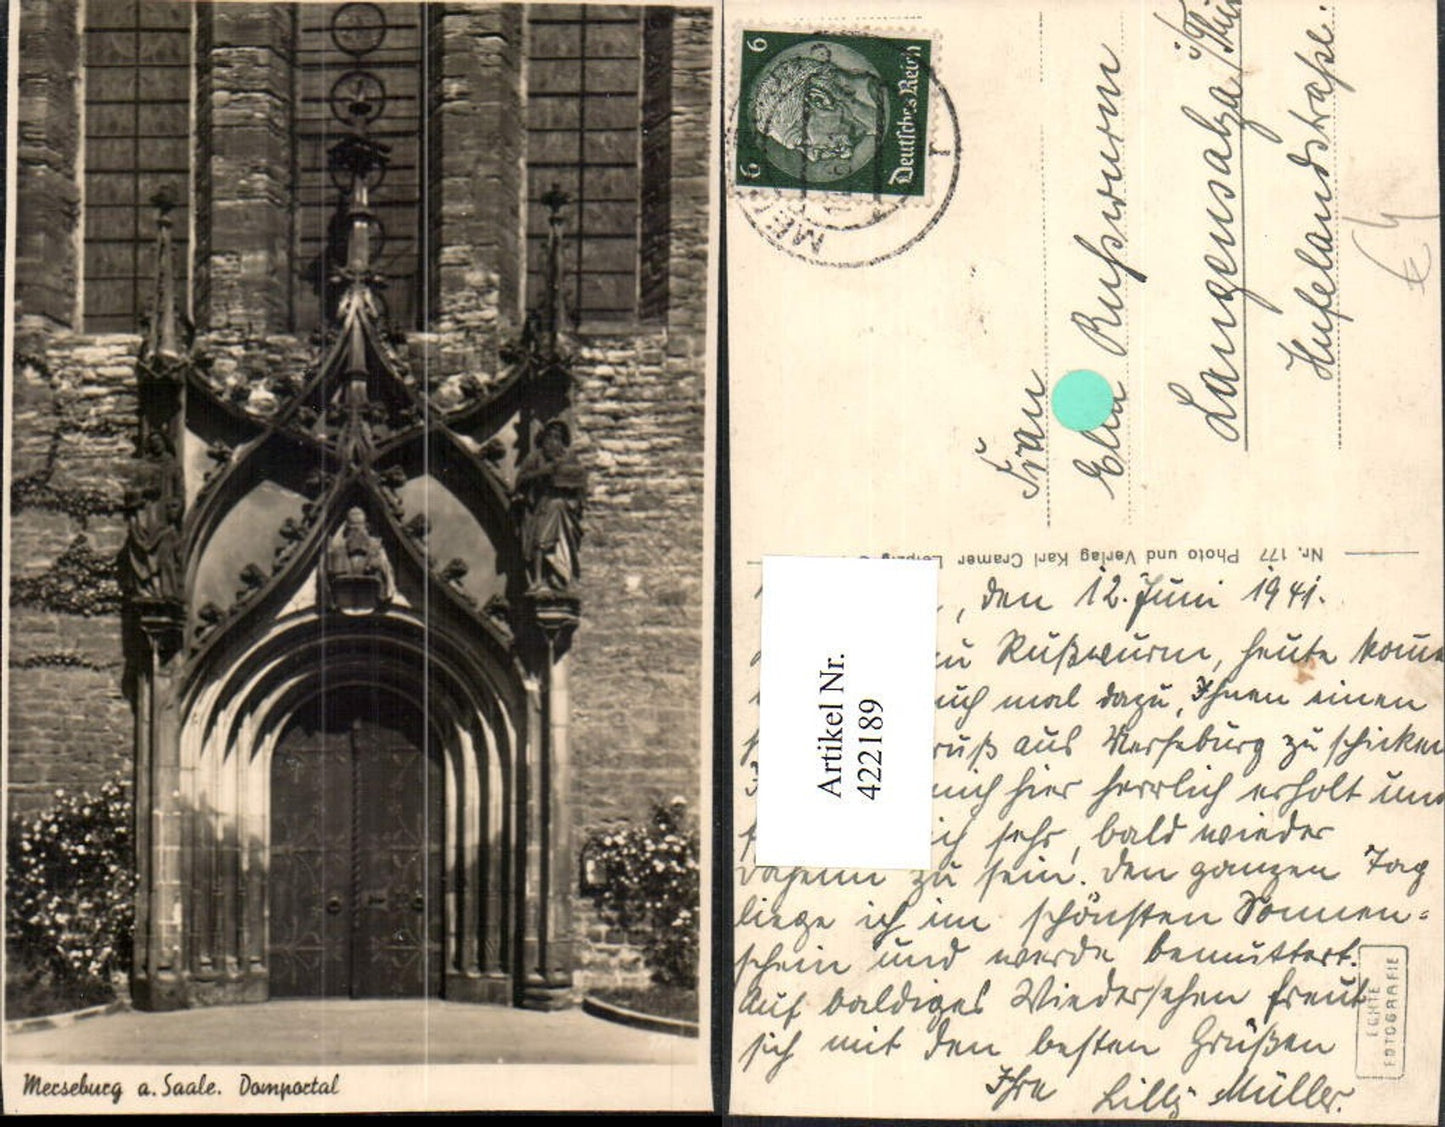 Merseburg a. Saale. Domportal
6 6
Deutsches Reich
Frau
Ella Rußwurm
Langensalza/Thür
Hufelandstraße.
Nr. 177 Photo und Verlag Karl Cramer Leipzig
Artikel Nr.
422189
, den 12. Juni 1941.
Rußwurm, heute komme
mal dazu, Ihnen einen
aus Merseburg zu schicken
hier herrlich erholt und
sehr, bald wieder
daheim zu sein. Den ganzen Tag
liege ich im schönsten Sonnen=
schein und werde bemuttert.
Auf baldiges Wiedersehen freut
sich mit den besten Grüßen
Ihre Lilly Müller.
ECHTE
FOTOGRAFIE